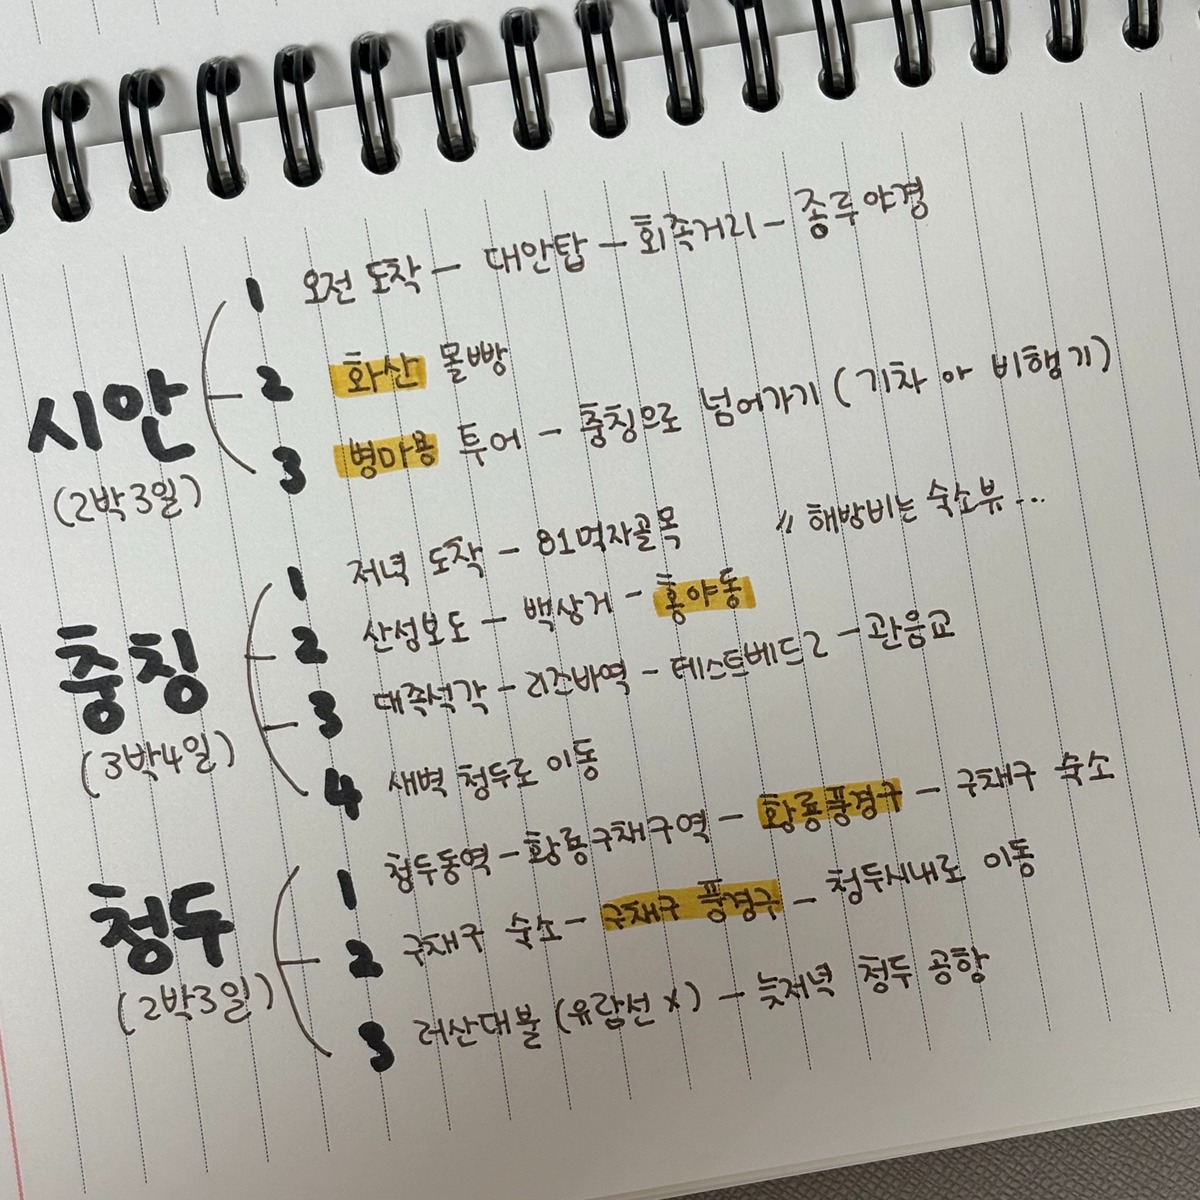 시안
(2박3일)
1 오전 도착 - 대안탑 - 회족거리 - 종루야경
2 화산 몰빵
3 병마용 투어 - 충칭으로 넘어가기 (기차 or 비행기)
충칭
(3박4일)
1 저녁 도착 - 81먹자골목 〃 해방비는 숙소뷰...
2 산성보도 - 백상거 - 홍야동
3 대족석각 - 리즈바역 - 테스트베드2 - 관음교
4 새벽 청두로 이동
청두
(2박3일)
1 청두동역 - 황룡구채구역 - 황룡풍경구 - 구채구 숙소
2 구채구 숙소 - 구채구 풍경구 - 청두시내로 이동
3 러산대불 (유람선 X) - 늦저녁 청두 공항